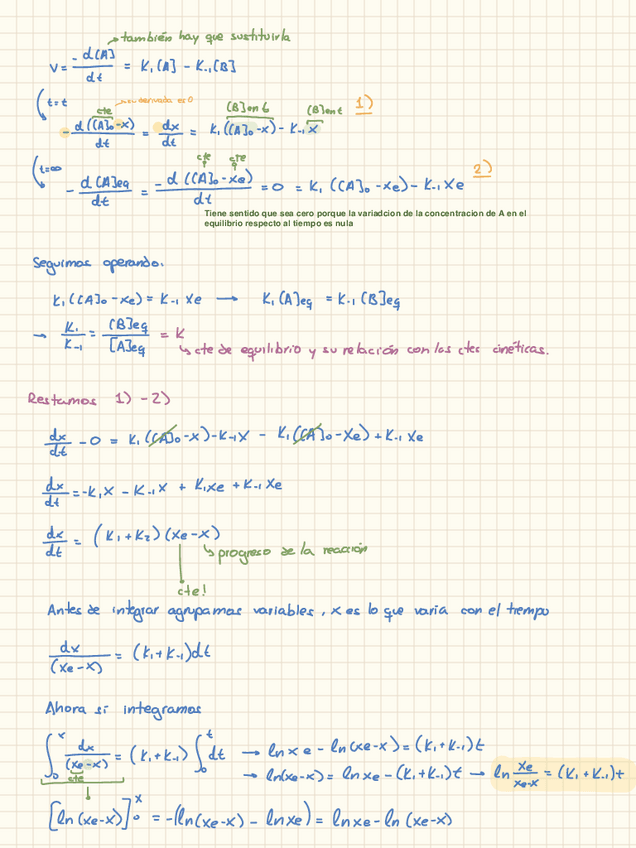 también hay que sustituirla
V = -d[A]/dt = K₁[A] - K₋₁[B]
t=t
cte
su derivada es 0
[B] en t
[B] en t
1)
-d([A]₀-x)/dt = dx/dt = K₁([A]₀-x) - K₋₁x
t=∞
cte cte
2)
-d[A]eq/dt = -d([A]₀-xe)/dt = 0 = K₁([A]₀-xe) - K₋₁xe
Tiene sentido que sea cero porque la variadcion de la concentracion de A en el
equilibrio respecto al tiempo es nula
Seguimos operando.
K₁([A]₀-xe) = K₋₁xe → K₁[A]eq = K₋₁[B]eq
→ K₁/K₋₁ = [B]eq/[A]eq = K
cte de equilibrio y su relación con las ctes cinéticas.
Restamos 1) - 2)
dx/dt - 0 = K₁([A]₀-x) - K₋₁x - K₁([A]₀-xe) + K₋₁xe
dx/dt = -K₁x - K₋₁x + K₁xe + K₋₁xe
dx/dt = (K₁+K₂)(xe-x)
progreso de la reacción
cte!
Antes de integrar agrupamas variables, x es lo que varia con el tiempo
dx/(xe-x) = (K₁+K₋₁)dt
Ahora si integramos
∫₀ˣ dx/(xe-x) = (K₁+K₋₁) ∫₀ᵗ dt → ln xe - ln(xe-x) = (K₁+K₋₁)t
cte
→ ln(xe-x) = ln xe - (K₁+K₋₁)t → ln xe/xe-x = (K₁+K₋₁)t
[ln(xe-x)]₀ˣ = -(ln(xe-x) - ln xe) = ln xe - ln(xe-x)